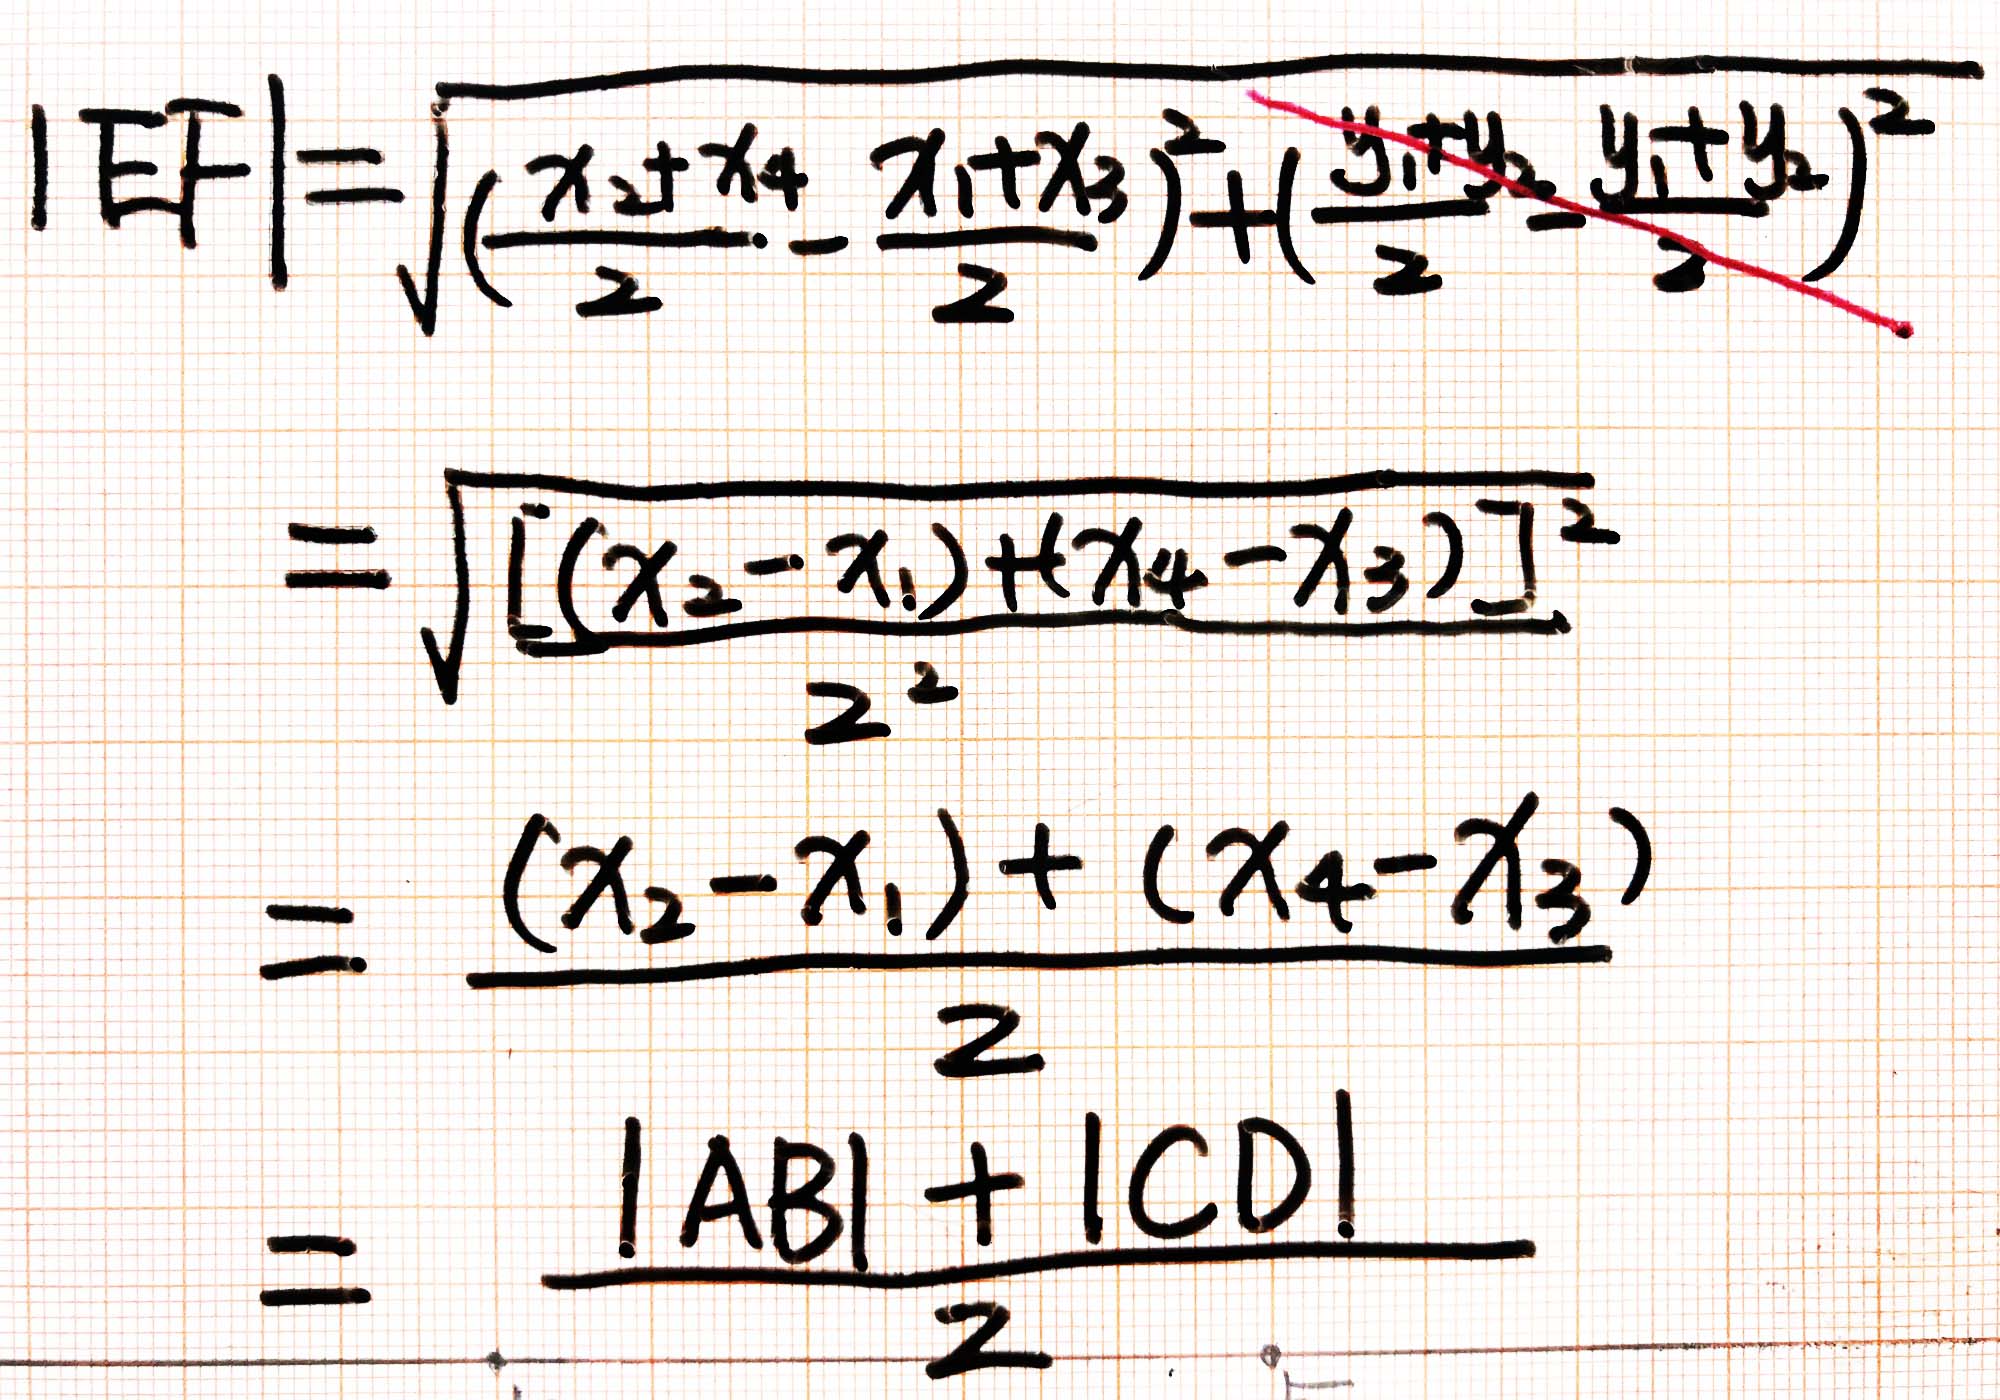 |EF| = √((x₂+x₄)/2 - (x₁+x₃)/2)² + ((y₁+y₂)/2 - (y₁+y₂)/2)²
= √[(x₂-x₁)+(x₄-x₃)]²/2²
= ((x₂-x₁)+(x₄-x₃))/2
= (|AB|+|CD|)/2